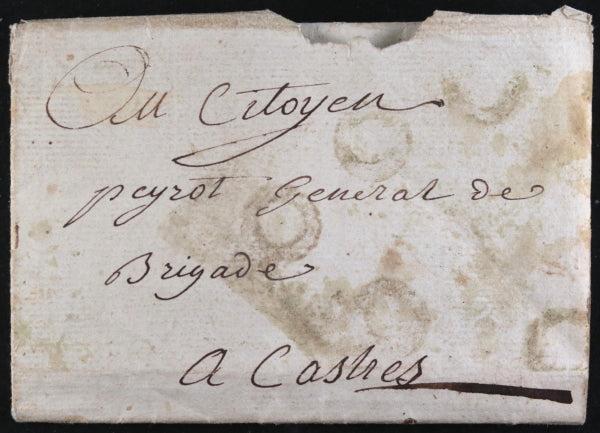 Au Citoyen
peyrot General de
Brigade
A Castres